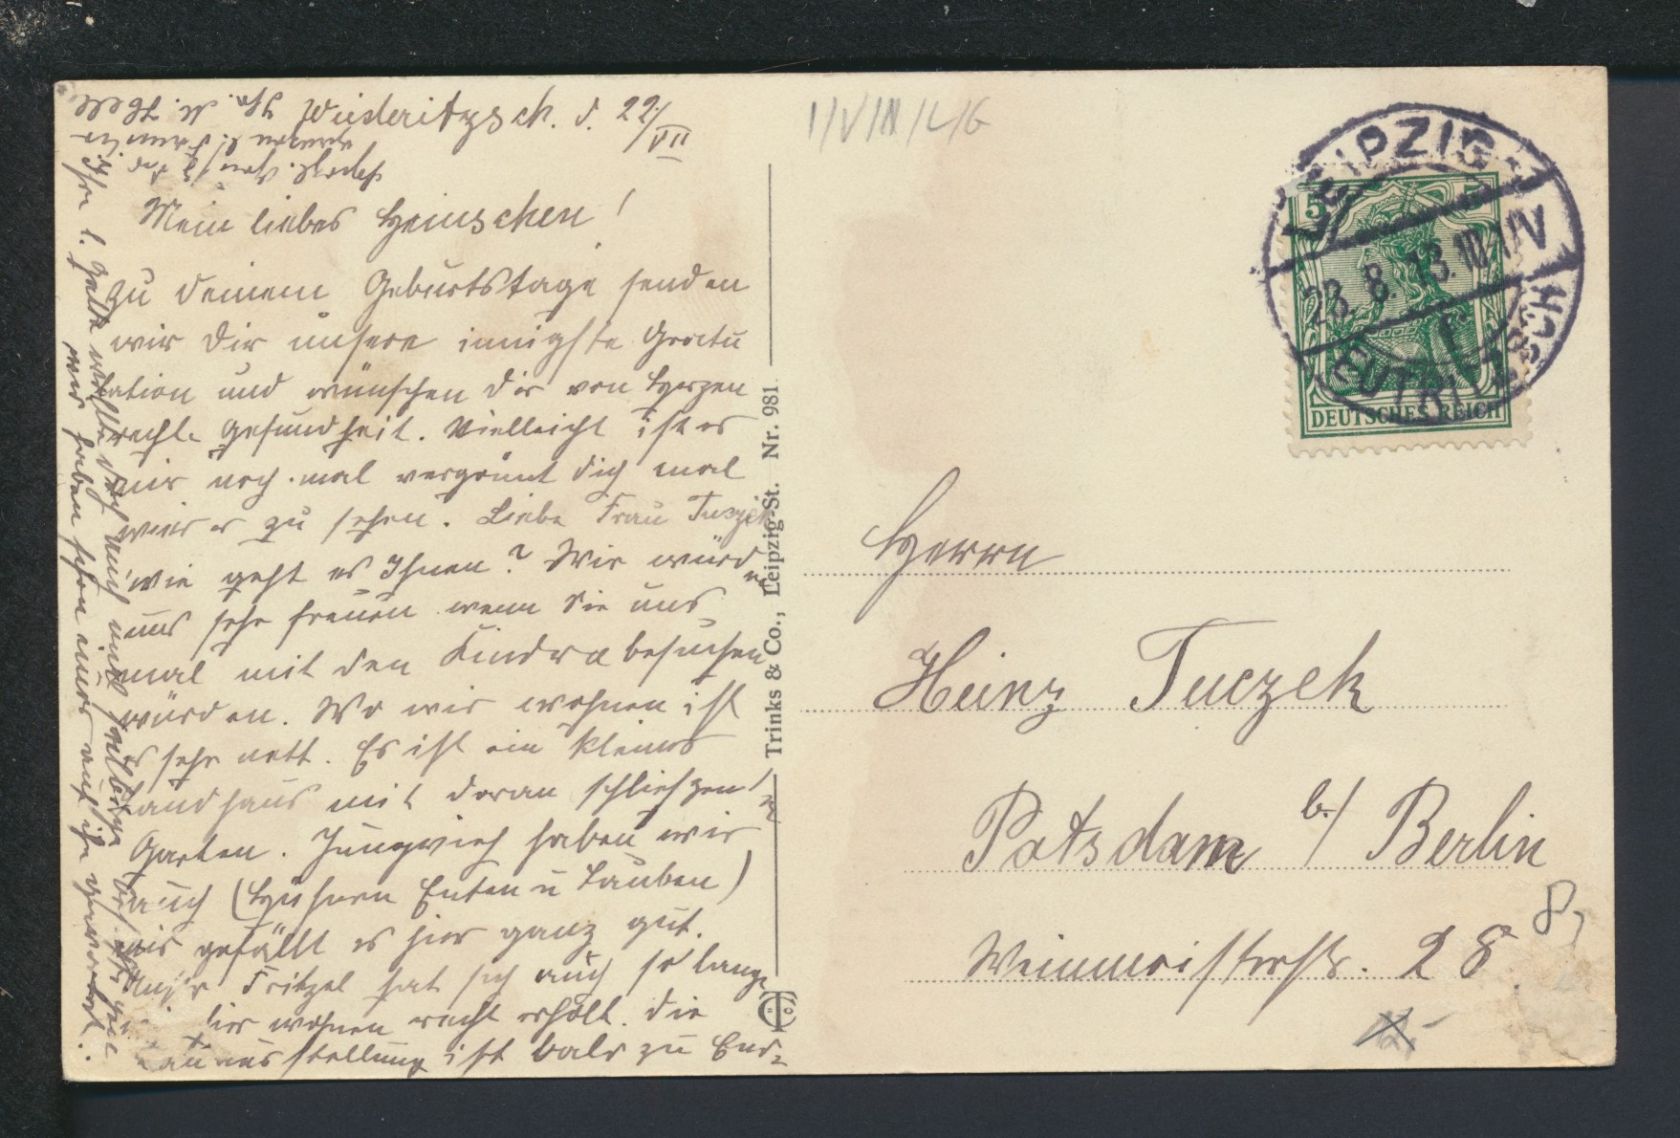 Wiederitzsch. d. 22/VII
Mein liebes Heinschen!
zu deinem Geburtstage senden
wir Dir unsere innigste Gratu
lation und wünschen Dir von Herzen
rechte Gesundheit. Vielleicht ist es
mir noch mal vergönnt dich mal
wieder zu sehen. Liebe Frau Tuczek
wie geht es Ihnen? Wir würden
uns sehr freuen wenn Sie uns
mal mit den Kindra besuchen
würden. Wo wir wohnen ist
es sehr nett. Es ist ein kleines
Landhaus mit daran schließzenden
Garten. Jungvieh haben wir
auch (Hühnern Enten u Tauben)
mir gefällt es hier ganz gut.
Fritzel hat sich auch so lange
hier wohnen recht erholt. Die
Bauausstellung ist bald zu End-
wir haben schon immer auf ihn gewartet.
Trinks & Co., Leipzig-St. Nr. 981
I/VIII/L/G
LEIPZIG
23.8.13.10-11V
EUTRITZSCH
5
DEUTSCHES REICH
Herrn
Heinz Tuczek
Potsdam b/ Berlin
Weinmeisterstr. 28
8,